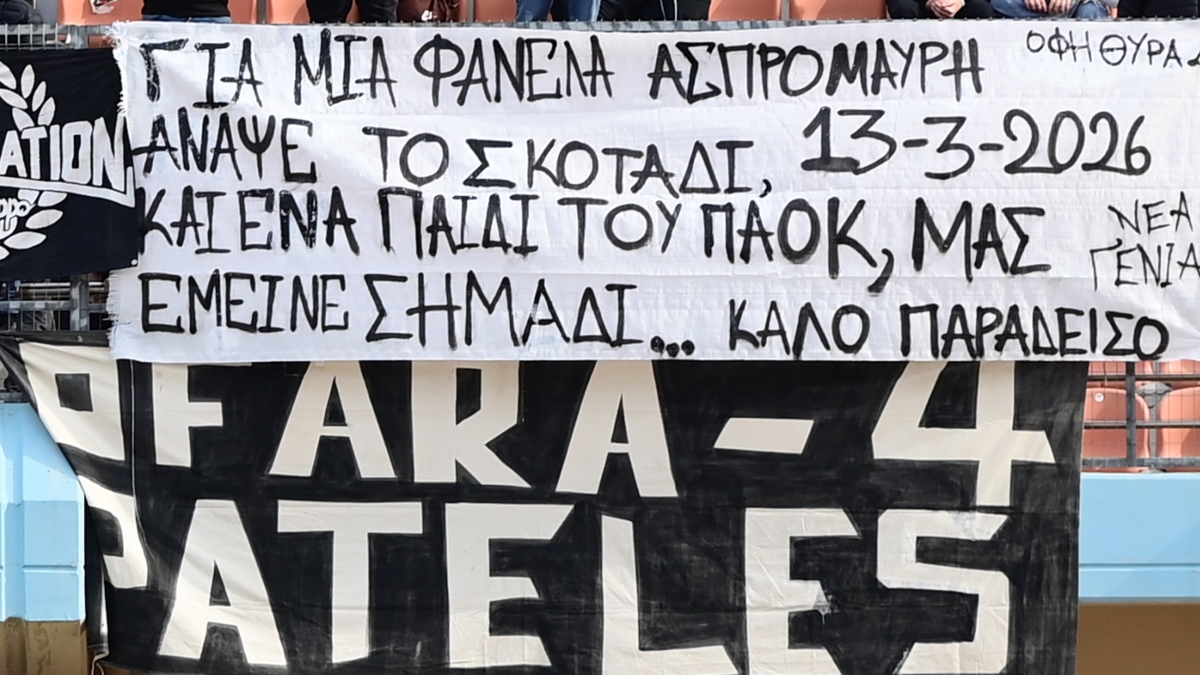 ΓΙΑ ΜΙΑ ΦΑΝΕΛΑ ΑΣΠΡΟΜΑΥΡΗ
ΟΦΗ ΘΥΡΑ 4
ΑΝΑΨΕ ΤΟ ΣΚΟΤΑΔΙ, 13-3-2026
ΚΑΙ ΕΝΑ ΠΑΙΔΙ ΤΟΥ ΠΑΟΚ, ΜΑΣ
ΝΕΑ
ΓΕΝΙΑ
ΕΜΕΙΝΕ ΣΗΜΑΔΙ... ΚΑΛΟ ΠΑΡΑΔΕΙΣΟ
ATION
OFARA-4
PATELES